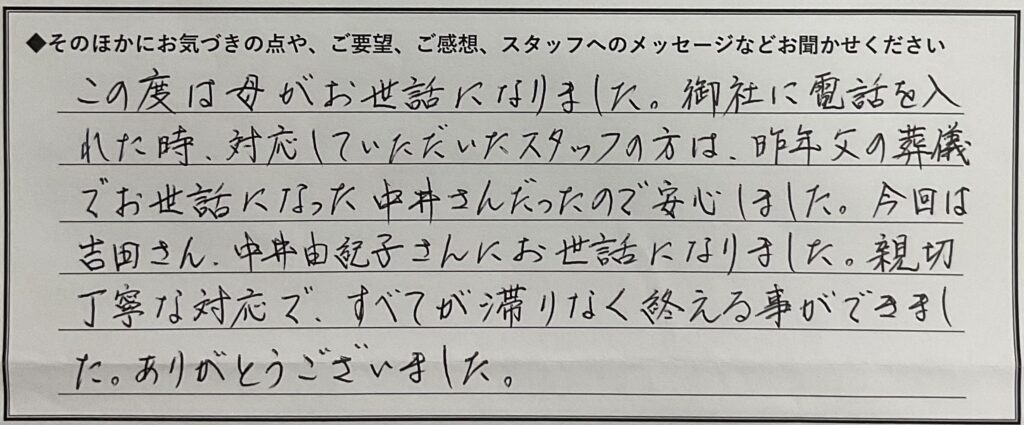 ◆そのほかにお気づきの点や、ご要望、ご感想、スタッフへのメッセージなどお聞かせください
この度は母がお世話になりました。御社に電話を入
れた時、対応していただいたスタッフの方は、昨年父の葬儀
でお世話になった中井さんだったので安心しました。今回は
吉田さん、中井由紀子さんにお世話になりました。親切
丁寧な対応で、すべてが滞りなく終える事ができまし
た。ありがとうございました。